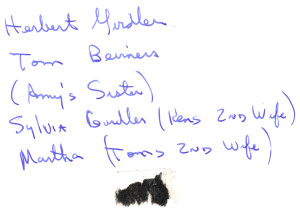 Herbert Girdler
Tom Beiners
(Amy's Sister)
Sylvia Goudler (Kens 2ND Wife)
Martha (Toms 2ND Wife)